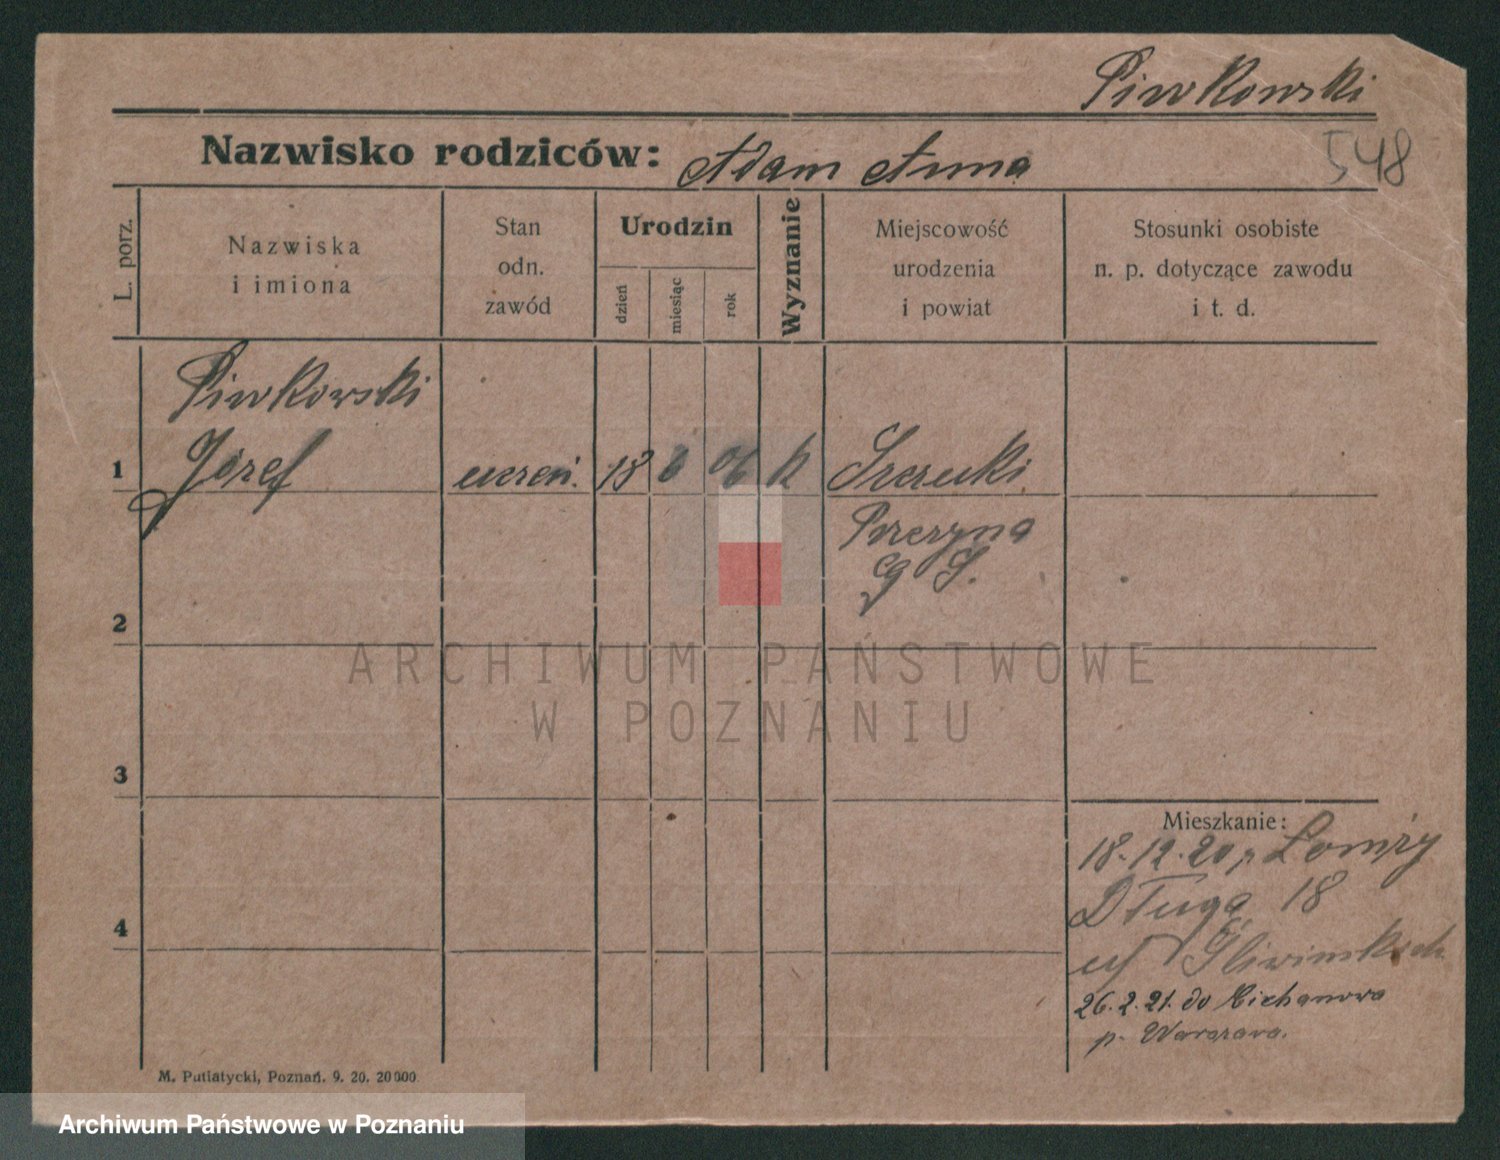 Piwkowski
Nazwisko rodziców: Adam Anna
548
L. porz.
Nazwiska
i imiona
Stan
odn.
zawód
Urodzin
dzień
miesiąc
rok
Wyznanie
Miejscowość
urodzenia
i powiat
Stosunki osobiste
n. p. dotyczące zawodu
i t. d.
Piwkowski
1 Józef uczeń. 18 6 06 k Szczuki
G. S.
2
3
4
ARCHIWUM PAŃSTWOWE
W POZNANIU
Mieszkanie:
18.12.20 z Łomży
Długa 18
26.2.21. do Cichanowa
p. Warszawa.
M. Putiatycki, Poznań. 9. 20. 20000.
Archiwum Państwowe w Poznaniu